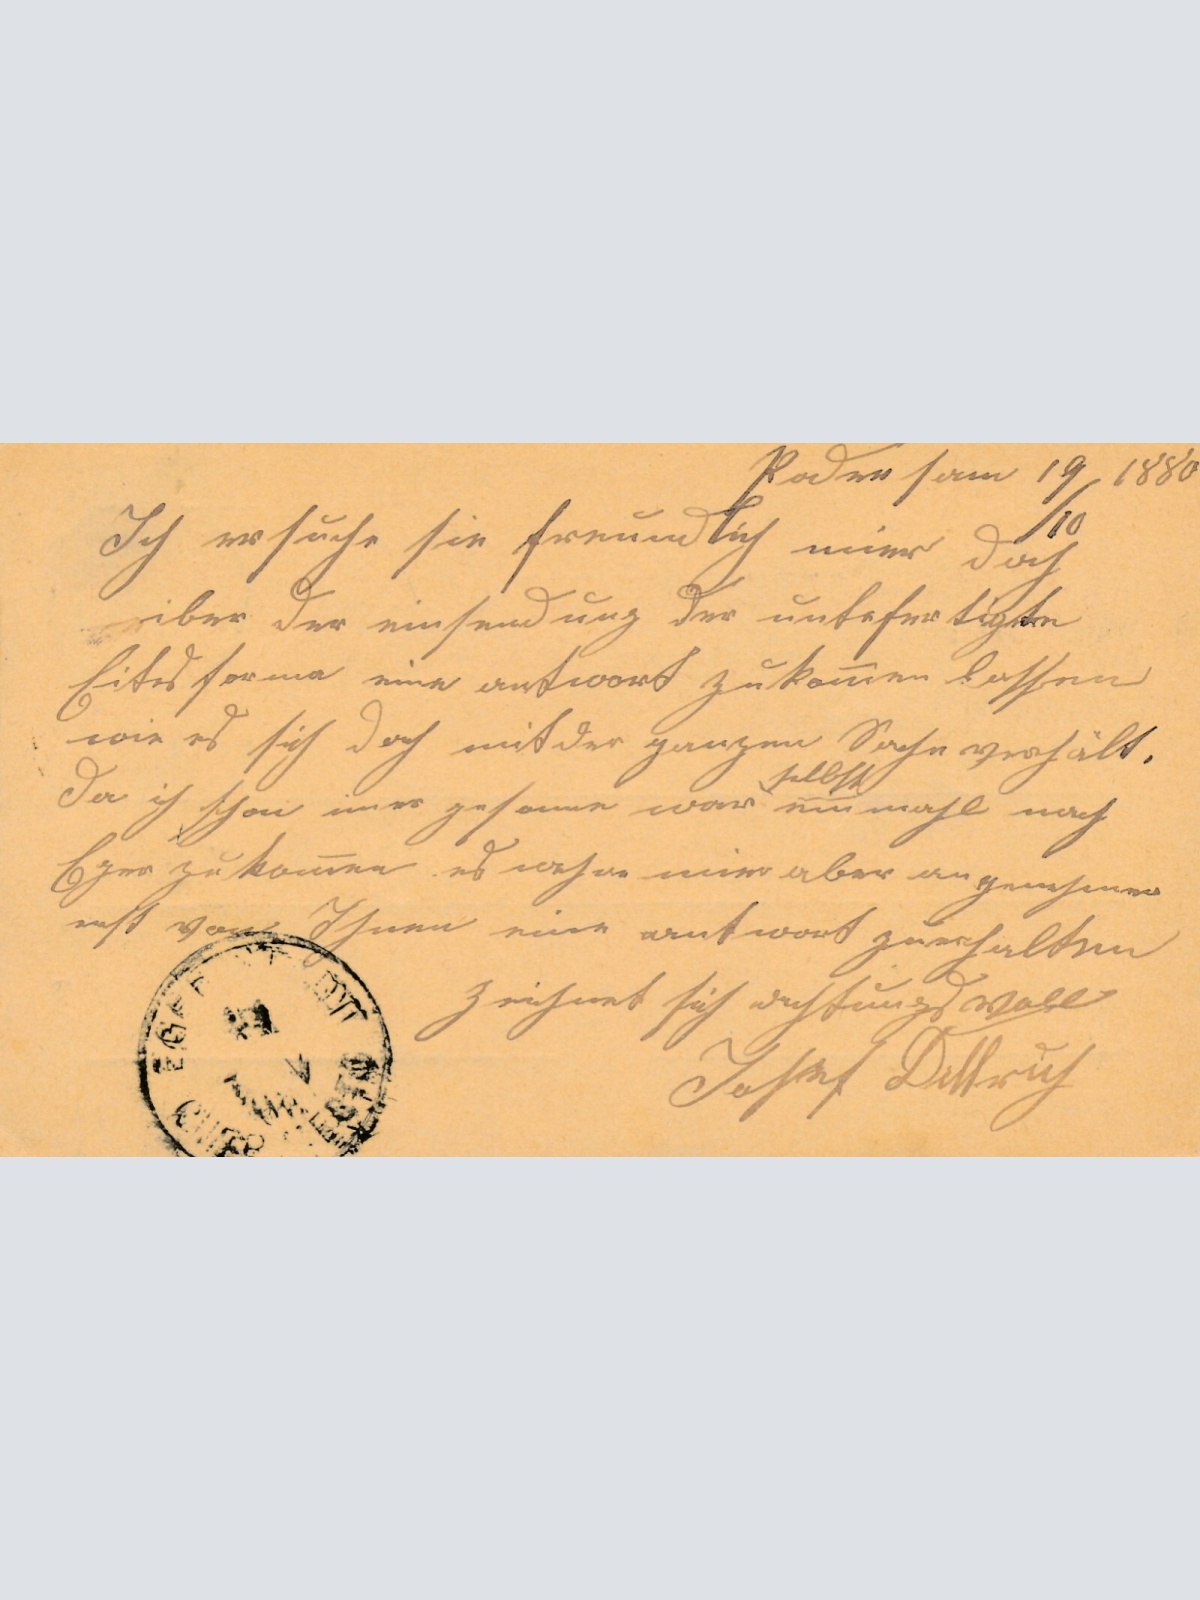 Podersam 19/10 1880
Ich ersuche sie freundlich mier doch
iber der einsendung der untefertigten
Eitesforma eine antwort zukom̅en lassen
wie es sich doch mit der ganzen Sache verhält.
Da ich schon imer gesonne war selbst einmahl nach
Eger zukom̅en es wehre mier aber angenehmer
erst von Ihnen eine antwort zuerhalten
zeichnet sich achtungsvoll
Josef Dittrich
EGER
CHEB